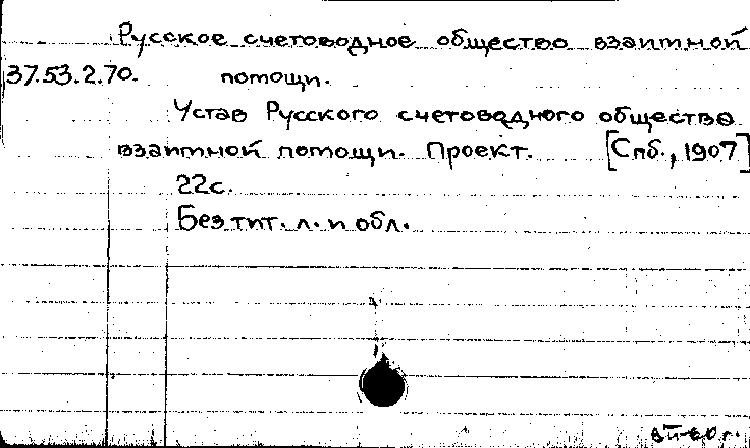 Русское счетоводное общество взаимной
37.53.2.70. помощи.
Устав Русского счетоводного общества
взаимной помощи. Проект. [Спб., 1907]
22с.
Без тит. л. и обл.